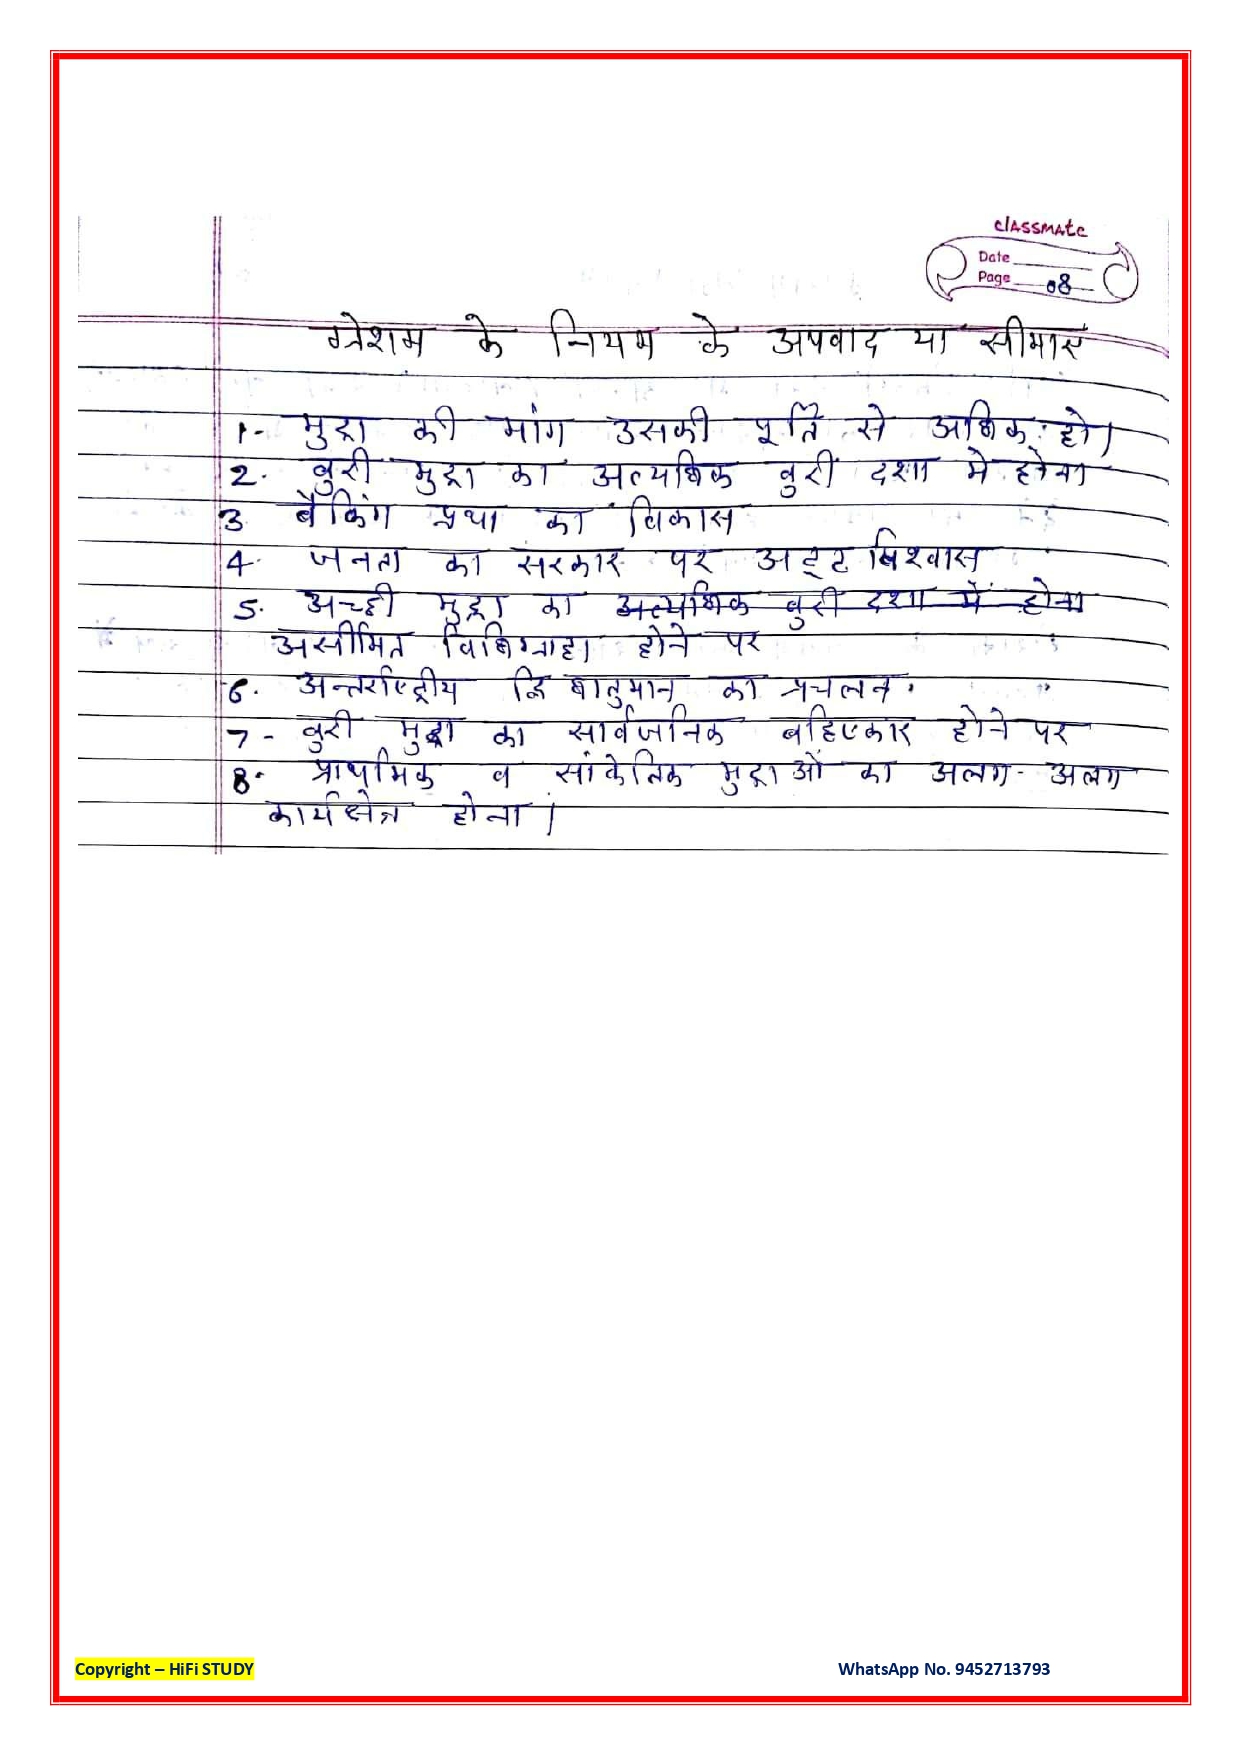 classmate
Date
Page 08
ग्रेशम के नियम के अपवाद या सीमाए
1- मुद्रा की मांग उसकी पूर्ति से अधिक हो।
2. बुरी मुद्रा का अत्यधिक बुरी दशा मे होना
3 बैंकिंग प्रथा का विकास
4. जनता का सरकार पर अटूट विश्वास
5. अच्छी मुद्रा का अत्यधिक बुरी दशा में होना
असीमित विधिग्राह्य होने पर
6. अन्तर्राष्ट्रीय द्वि धातुमान का प्रचलन.
7- बुरी मुद्रा का सार्वजनिक बहिष्कार होने पर
8. प्राथमिक व सांकेतिक मुद्राओं का अलग-अलग
कार्यक्षेत्र होना।
Copyright – HiFi STUDY
WhatsApp No. 9452713793